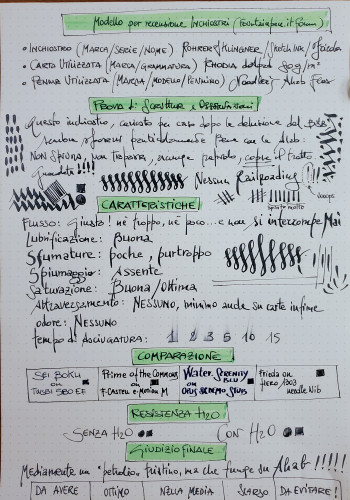 Modello per recensione Inchiostri (Fountainpen.it Forum)
• Inchiostro (Marca/Serie/Nome) Rohrer&Klingner/Sketch Ink/Frieda
• Carta Utilizzata (Marca/Grammatura) Rhodia dotpad 80g/m²
• Penna Utilizzata (Marca/Modello/Pennino) Noodler's Ahab Flex
Prova di Scrittura e
Questo inchiostro, caricato per caso dopo la delusione del
sembra trovarsi particolarmente bene con la Ahab:
Non spiuma, non trapassa, asciuga rapido, copre il tratto
Guardate!!!!
Nessun Railroading!!!
Whoops
Sforzo molto
CARATTERISTICHE
Flusso: Giusto! né troppo, né poco... e non si interrompe Mai
Lubrificazione: Buona
Sfumature: poche, purtroppo
Spiumaggio: Assente
Saturazione: Buona/Ottima
Attraversamento: Nessuno, minimo anche su carte infime
odore: Nessuno
Tempo di Asciugatura: 1 2 3 5 10 15
COMPARAZIONE
SEI BOKU on TWSBI 580 EF
Prime of the Commons on F-Castell e-Motion M
Water Serenity Blu on
Frieda on Hero 1003 needle Nib
RESISTENZA H2O
SENZA H2O CON H2O
GIUDIZIO FINALE
Mediamente un "petrolio" furistino, ma che funge su Ahab!!!!!
DA AVERE OTTIMO NELLA MEDIA SCARSO DA EVITARE!